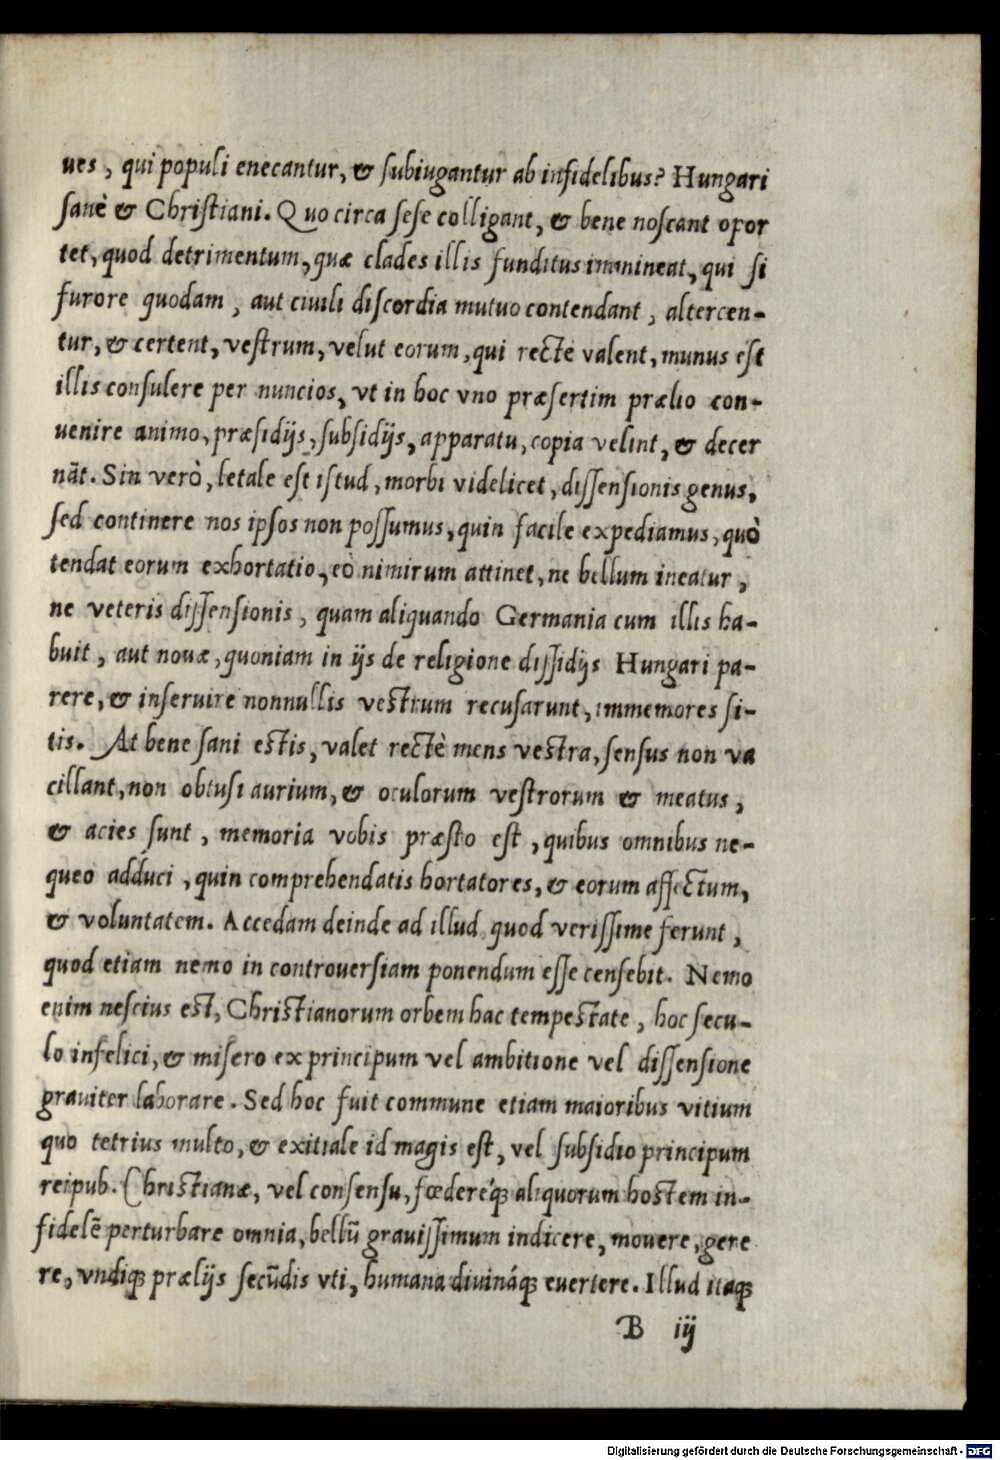 ues, qui populi enecantur, & ſubiugantur ab infidelibus? Hungari
ſanè & Chriſtiani. Quo circa ſeſe colligant, & bene noſcant opor
tet, quod detrimentum, quæ clades illis funditus immineat, qui ſi
furore quodam, aut ciuili diſcordia mutuo contendant, altercen-
tur, & certent, veſtrum, velut eorum, qui rectè valent, munus eſt
illis conſulere per nuncios, vt in hoc vno præſertim prælio con-
uenire animo, præſidijs, ſubſidijs, apparatu, copia velint, & decer
nāt. Sin verò, letale eſt iſtud, morbi videlicet, diſſenſionis genus,
ſed continere nos ipſos non poſſumus, quin facile expediamus, quò
tendat eorum exhortatio, eò nimirum attinet, ne bellum ineatur,
ne veteris diſſenſionis, quam aliquando Germania cum illis ha-
buit, aut nouæ, quoniam in ijs de religione diſſidijs Hungari pa-
rere, & inſeruire nonnullis veſtrum recuſarunt, immemores ſi-
tis. At bene ſani eſtis, valet rectè mens veſtra, ſenſus non va
cillant, non obtuſi aurium, & oculorum veſtrorum & meatus,
& acies ſunt, memoria vobis præſto eſt, quibus omnibus ne-
queo adduci, quin comprehendatis hortatores, & eorum affectum,
& voluntatem. Accedam deinde ad illud quod veriſſime ferunt,
quod etiam nemo in controuerſiam ponendum eſſe cenſebit. Nemo
enim neſcius eſt, Chriſtianorum orbem hac tempeſtate, hoc ſecu-
lo infelici, & miſero ex principum vel ambitione vel diſſenſione
grauiter laborare. Sed hoc fuit commune etiam maioribus vitium
quo tetrius multo, & exitiale id magis eſt, vel ſubſidio principum
reipub. Chriſtianæ, vel conſenſu, fœdereq́ꝫ aliquorum hoſtem in-
fidelē perturbare omnia, bellū grauiſſimum indicere, mouere, gere
re, vndiqꝫ prælijs ſecūdis vti, humana diuináqꝫ euertere. Illud itaqꝫ
B iij
Digitalisierung gefördert durch die Deutsche Forschungsgemeinschaft - DFG